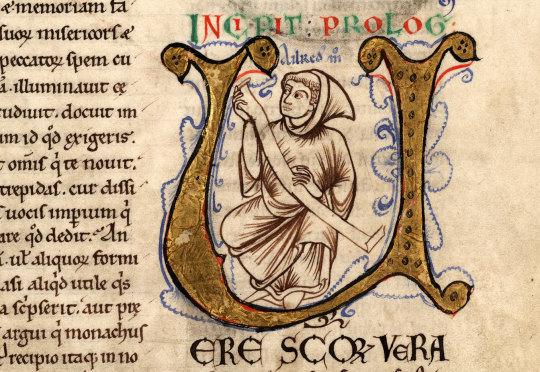 ę memoriam ſa
ſuoꝝ miſericorſ ę
peccatoꝝ ſpem cu
ā. illuminauit cę
cudiuit. docuit im
um id qđ exigeris.
omīs q̄ te nouit.
trepidas. cur diſſi
uocis imp̄ium q̄
are qđ dedit. An
. ul' aliquoꝝ formi
aſi aliqđ utile q̄s
a ſc̄pſerit. aut pre
argui q̄ monachus
recipio itaq; in no
INCIPIT · PROLOG·
Ailred' m̄
U
ERE SCOꝜ VERA